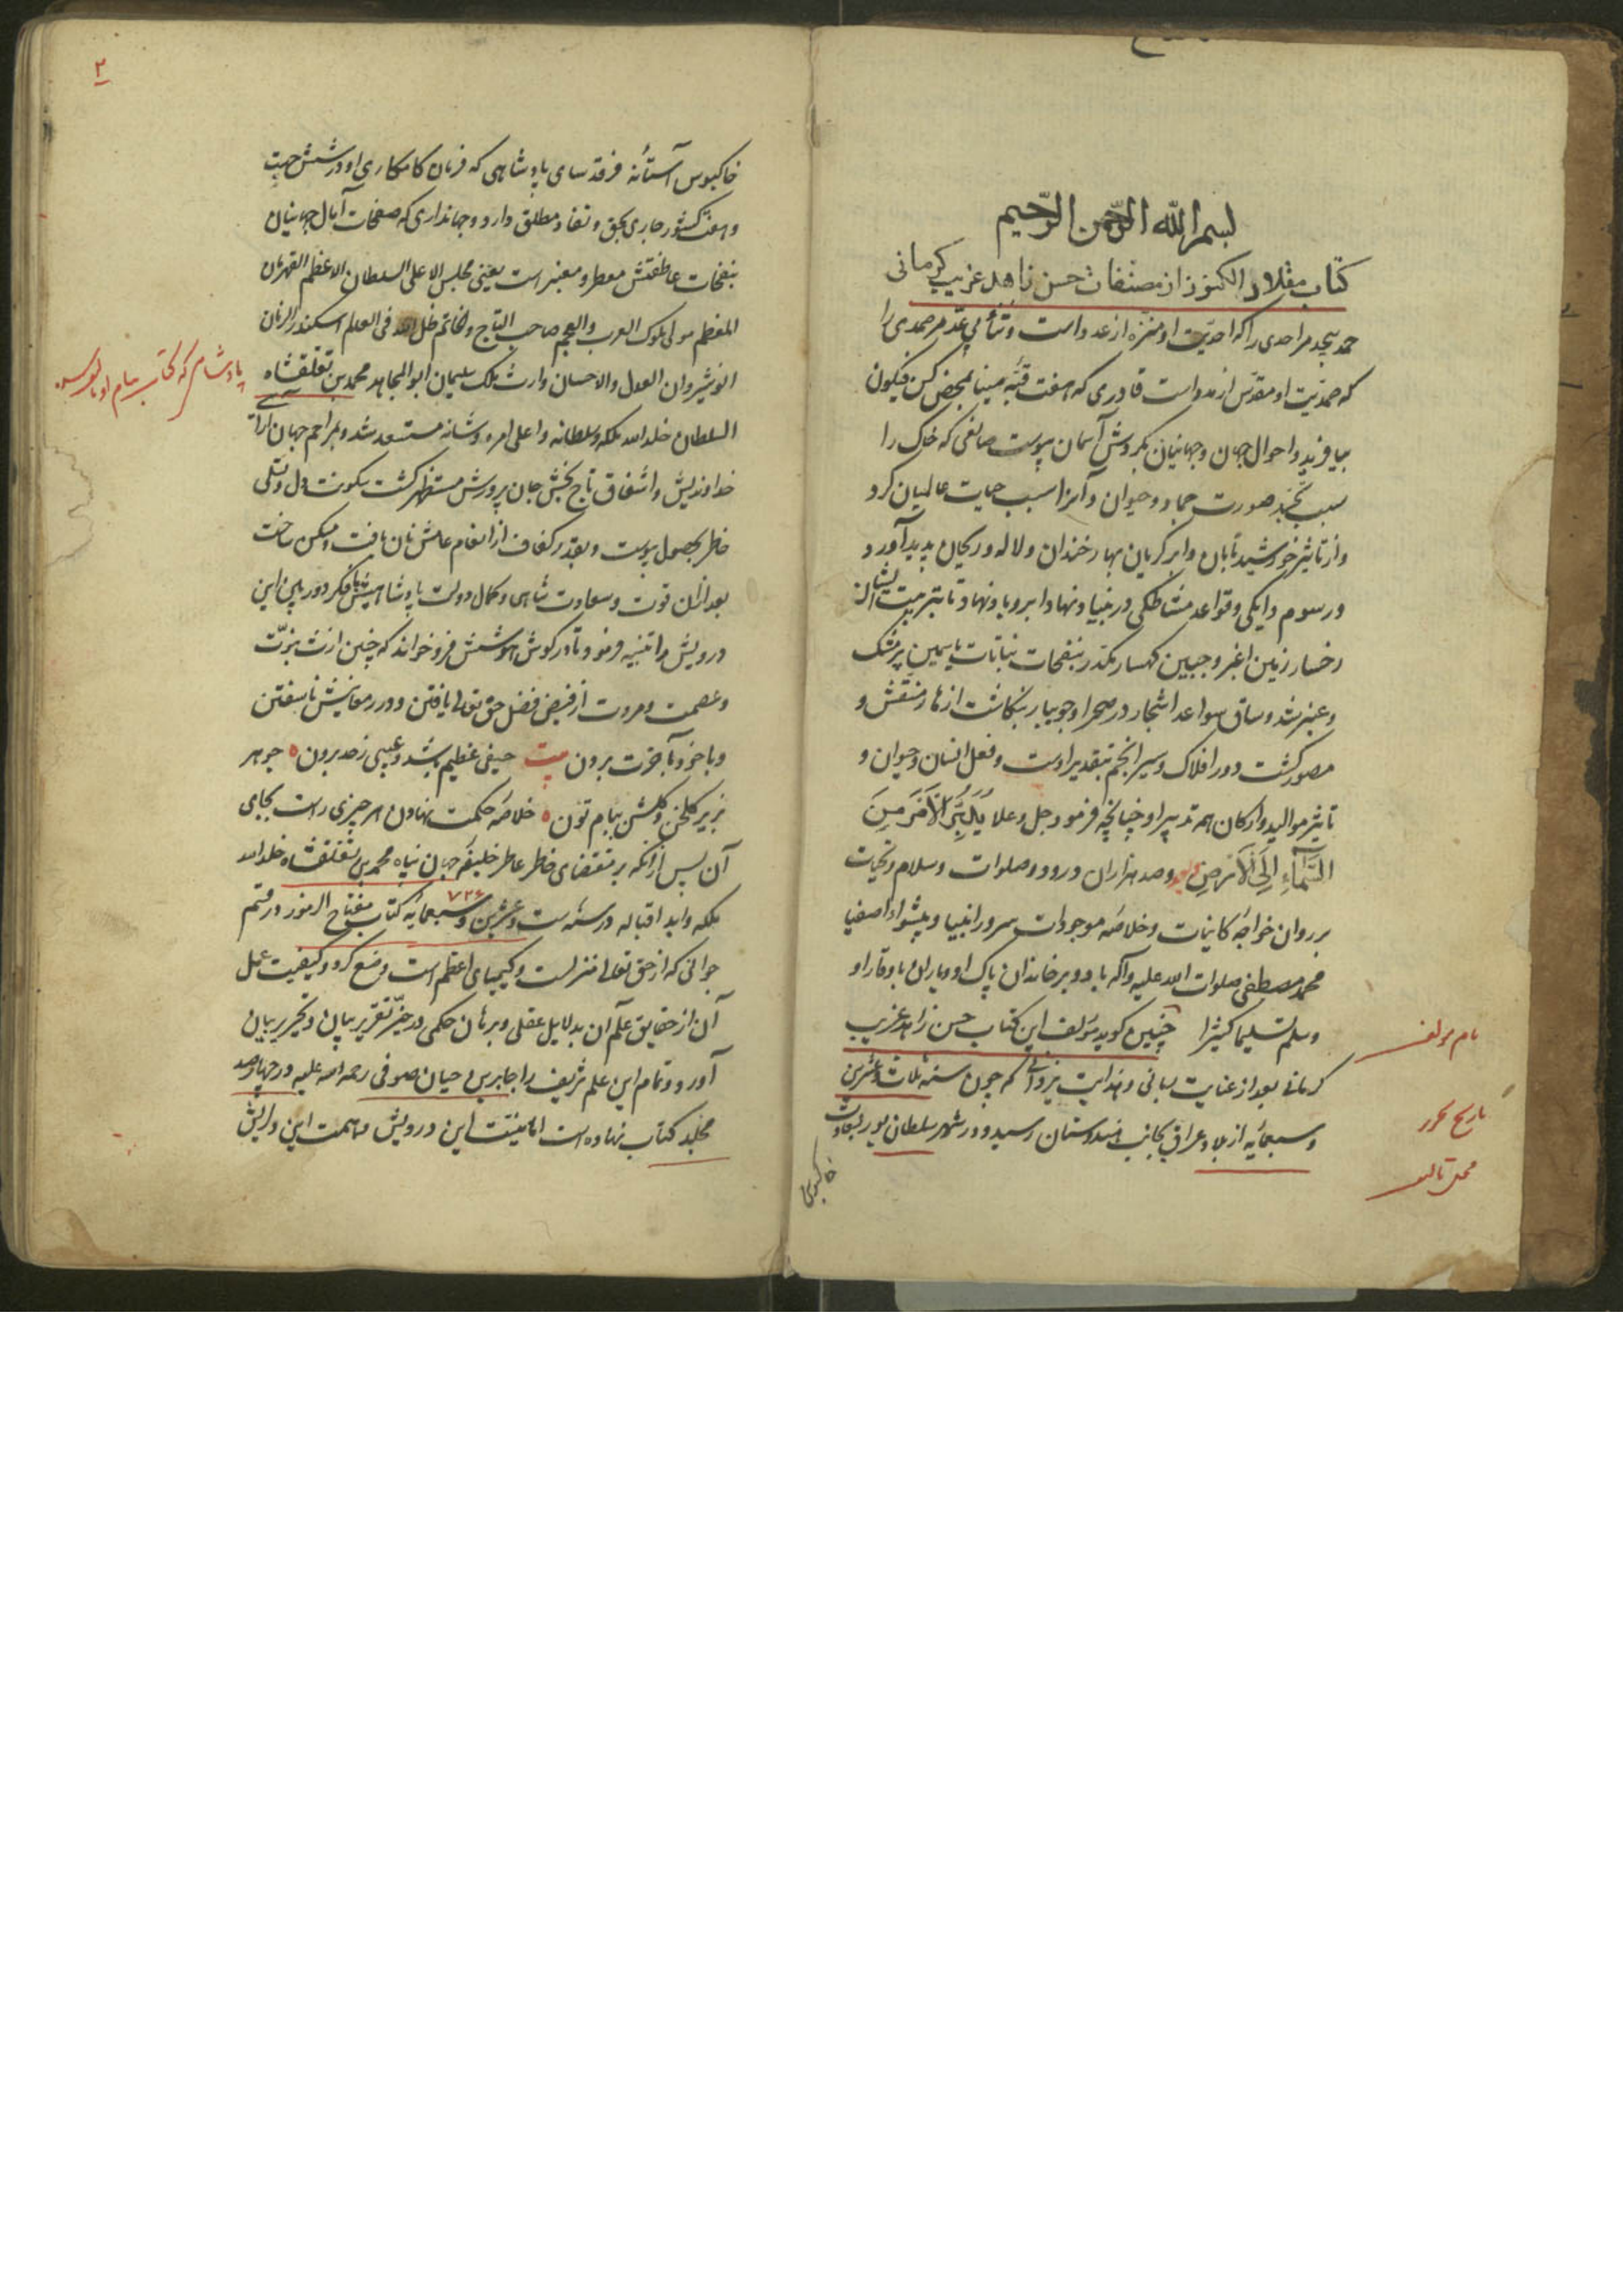 بسم الله الرحمن الرحیم
کتاب مقلاد الکنوز از مصنفات حسن زاهد غریب کرمانی
حمد بیحد مر احدی را که احدیت او منزه از عدد است و ثنا بی عد مر صمدی را
که صمدیت او مقدس از مدد است قادری که هفت قبه مینا بمحض کن فیکون
بیافرید و احوال جهان و جهانیان بگردش آسمان پیوست صانعی که خاک را
سبب صورت جماد و حیوان و آب را سبب حیات عالمیان کرد
و از تاثیر خورشید تابان و ابر گریان بهار خندان و لاله و ریحان پدید آورد
و رسوم دایگی و قواعد مشاطگی در بنیاد و نهاد ابر و باد نهاد تا بتربیت ایشان
رخسار زمین اغبر و جبین کهسار بنفحات نباتات یاسمین پرمشک
و عنبر شد و ساق سواعد اشجار در صحرا و جویبار بنگاشت ازهار منقش و
مصور گشت دور افلاک و سیر انجم بتقدیر اوست و فعل انسان و حیوان و
تاثیر موالید و ارکان هم تدبیر او چنانچه فرمود جل و علا یدبر الامر من
السماء الی الارض و صد هزاران درود و صلوات و سلام و تحیات
بر روان خواجه کاینات و خلاصه موجودات سرور انبیا و پیشوا اصفیا
محمد مصطفی صلوات الله علیه و آله باد و بر خاندان پاک او و یاران با وقار او
و سلم تسلیما کثیرا چنین گوید مولف این کتاب حسن زاهد غریب
نام مولف
کرمانی بعد از عنایت ربانی و هدایت یزدانی که چون سنه ثلاث و عشرین
تاریخ تحریر
و سبعمایه از بلاد عراق بجانب هندوستان رسید و در شهر سلطان پور بسعادت
محل تالیف
خاکبوس
۲
خاکبوس آستانه فرقد سای پادشاهی که فرمان کامکاری او در شش جهت
و هفت کشور جاری بحق و نفاذ مطلق دارد و جهانداری که صفحات آمال جهانیان
بنفحات عاطفتش معطر و معنبر است یعنی مجلس الاعلی السلطان الاعظم القهرمان
المعظم مولی ملوک العرب والعجم صاحب التاج والخاتم ظل الله فی العالم اسکندر الزمان
انوشیروان العدل والاحسان وارث ملک سلیمان ابوالمجاهد محمد بن تغلقشاه
پادشاهی که کتاب بنام او
السلطان خلد الله ملکه و سلطانه و اعلی امره و شانه مستسعد شد و بمراحم جهان آرای
خداوندیش و اشفاق تاج بخش جان پرورش مستظهر گشت سکونت دل و تسلی
خاطر بحصول پیوست و بقدر کفاف از انعام عامش نان یافت و مسکن ساخت
بعد ازان قوت و سعادت شاهی و کمال دولت پادشاهیش فکر دوربین این
درویش را تنبیه فرمود تا در گوش هوشش فرو خواند که چنین ارث نبوت
و عصمت و مروت از فیض فضل حق تعالی یافتن و درر معانیش ناسفتن
و با خود بآخرت بردن بیت حیفی عظیم باشد و عیبی ز حد برون جوهر
بزیر گلخن و گلشن ببام تون خلاصه حکمت نهادن هر چیزی راست بجای
آن پس ازانکه بر مقتضای خاطر عاطر خلیفه جهان پناه محمد بن تغلقشاه خلد الله
ملکه و ابد اقباله در سنه ست و عشرین و سبعمایه کتاب مفتاح الرموز در قسم
۷۲۶
جوانی که از حق تعالی منزلست و کیمیای اعظم است وضع کرد و کیفیت عمل
آن از حقایق علم آن بدلایل عقلی و برهان حکمی در حیز تقریر بیان و تحریر بنان
آورد و تمام این علم شریف را جابر بن حیان صوفی رحمه الله علیه در چهارصد
مجلد کتاب نهاده است اما نیت این درویش و همت این دلریش